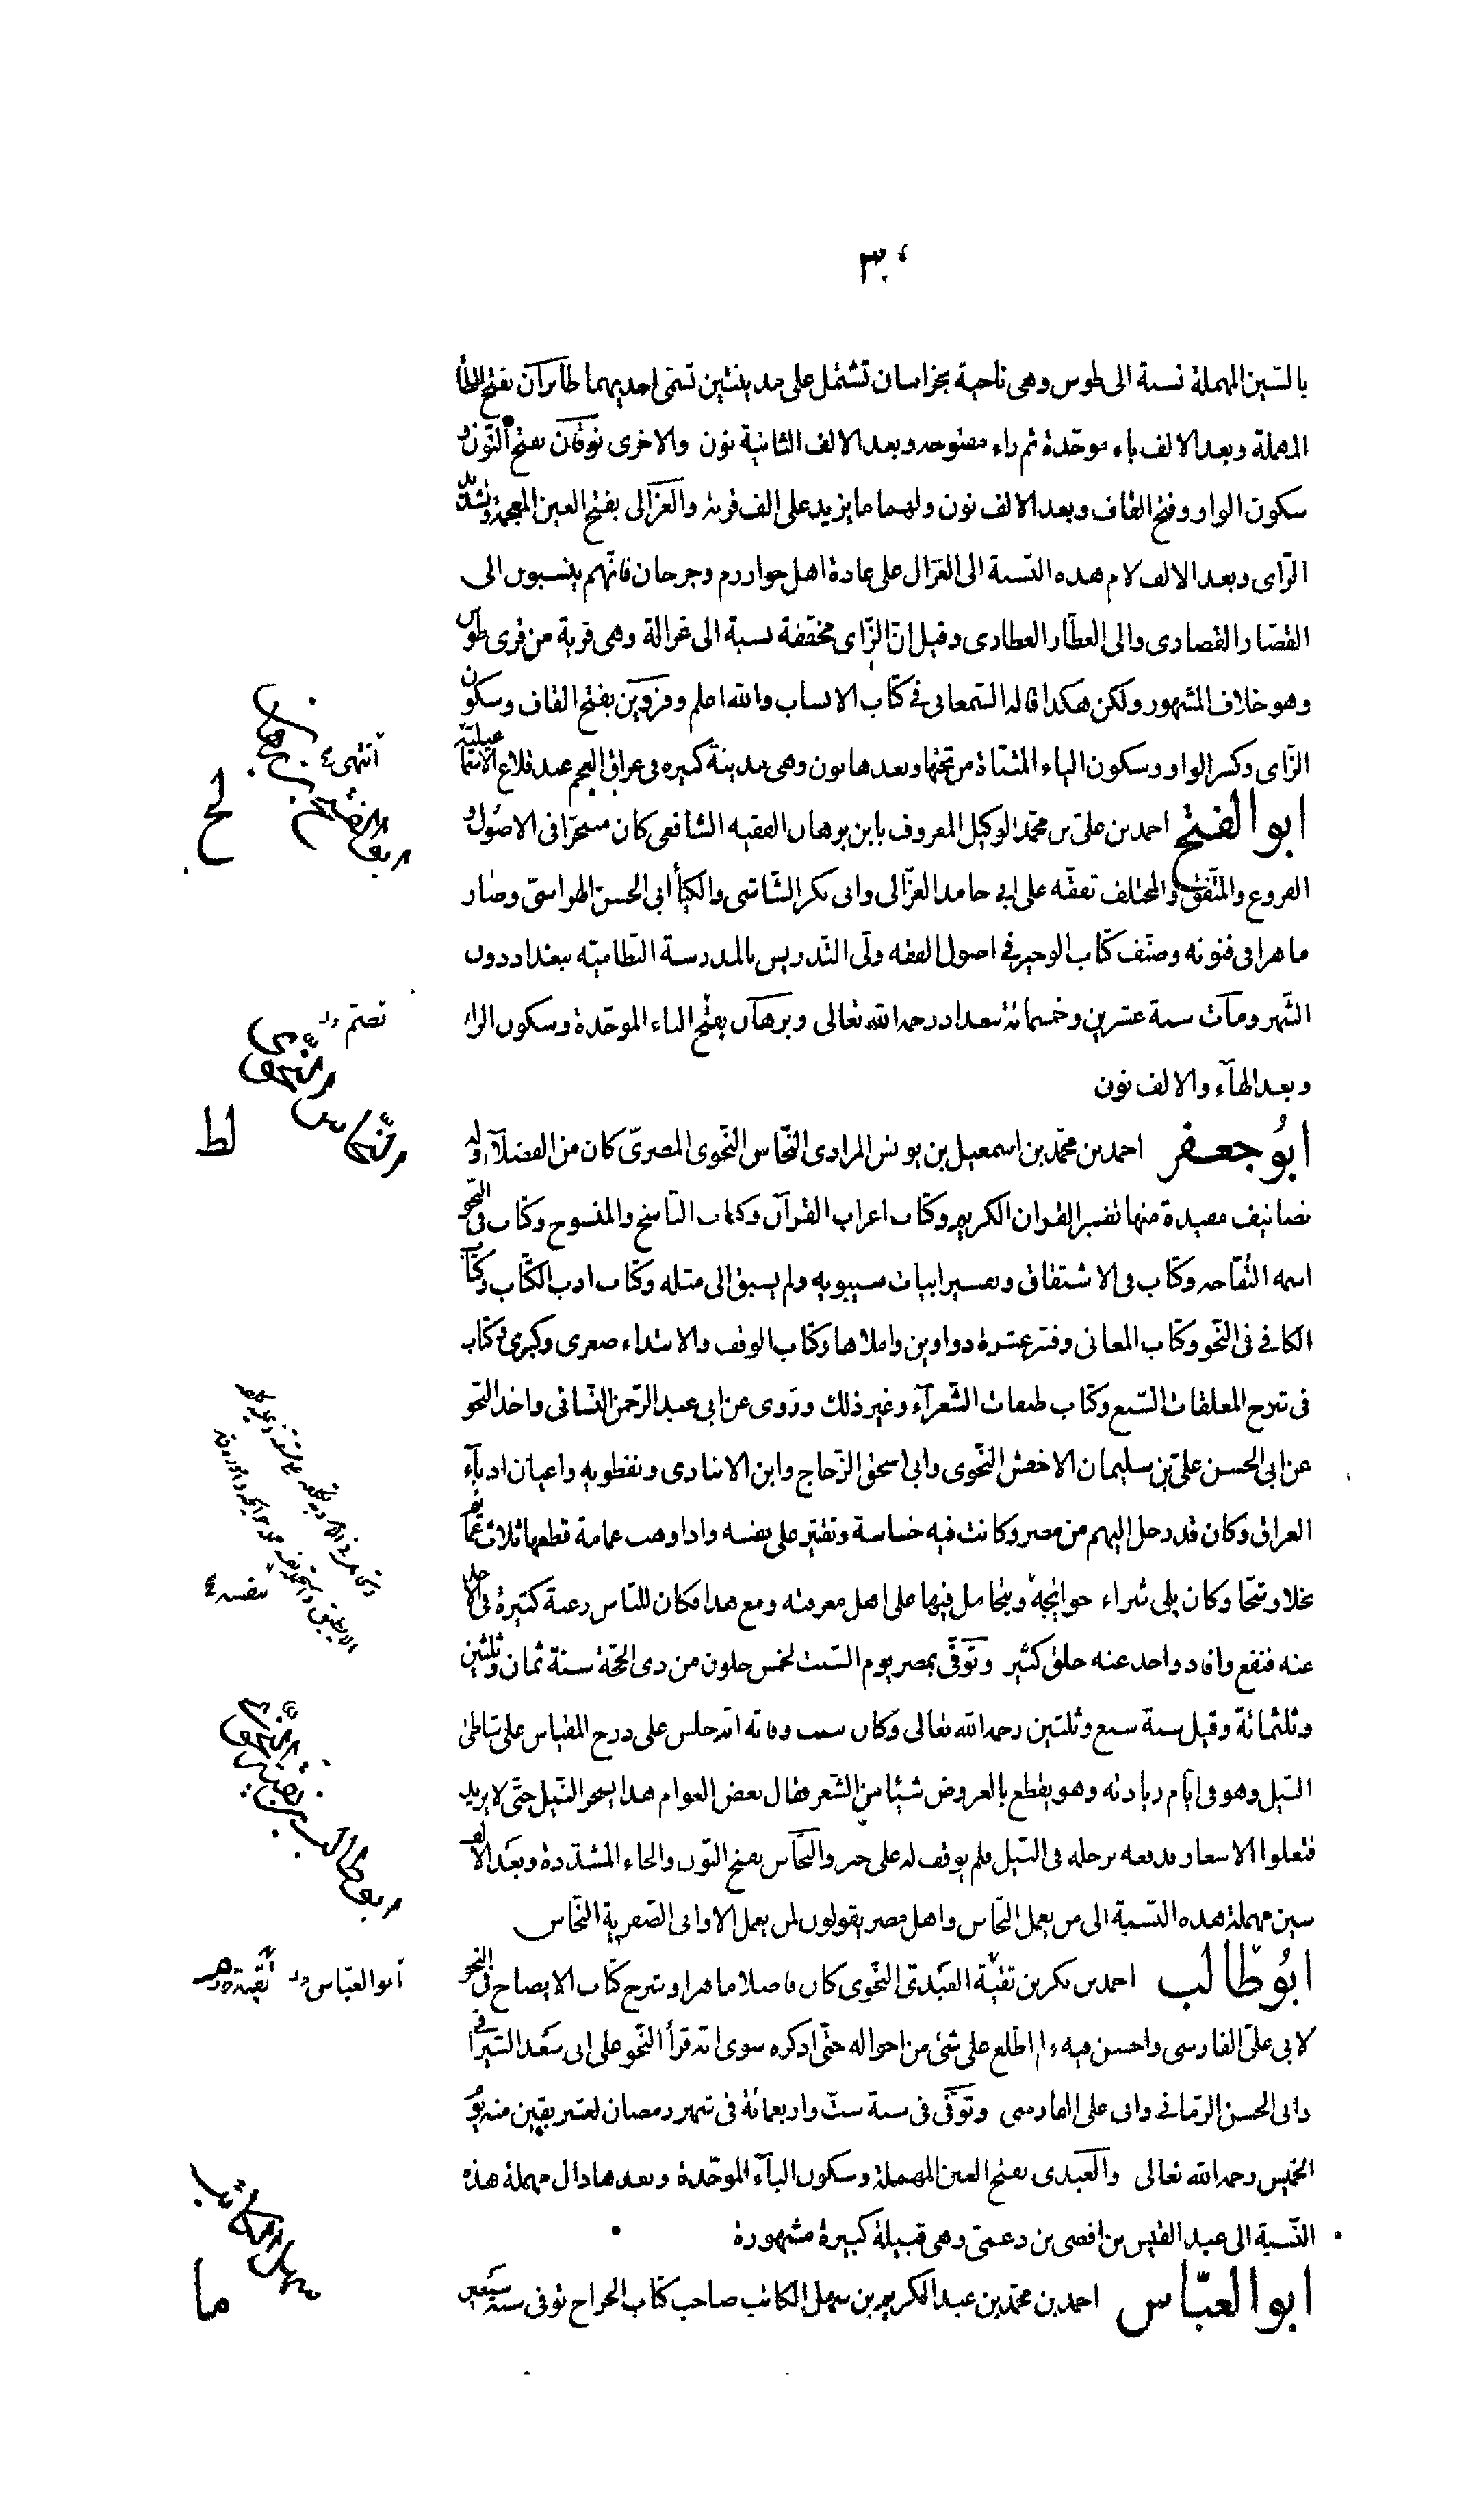 ٣٠
بالسّين المهملة نسبة الى طوس وهى ناحية بخراسان تشتمل على مدينتين تسمّى احديهما طابران بفتح الطّا
المهملة وبعد الالف باء موحّدة ثم راء مفتوحه وبعد الالف الثانية نون والاخرى نوقان بفتح النّون و
سكون الواو وفتح القاف وبعد الالف نون ولهما ما يزيد على الف قرية والغزالى بفتح الغين المعجمة وتشديد
الزّاى وبعد الالف لام هذه النسبة الى الغزال على عادة اهل خوارزم وجرجان فانّهم ينسبون الى
القصّار القصارى والى العطّار العطارى وقيل انّ الزّاى مخفّفة نسبة الى غزالة وهى قرية من قرى طوس
وهو خلاف المشهور ولكن هكذا قاله السّمعانى فى كتاب الانساب والله اعلم وقزوين بفتح القاف وسكون
الزّاى وكسر الواو وسكون الياء المثنّاة من تحتها وبعدها نون وهى مدينة كبيره فى عراق العجم عند قلاع الاسماعيليّة
ابو الفتح احمد بن علىّ بن محمّد الوكيل المعروف بابن برهان الفقيه الشافعى كان متبحّرا فى الاصُول و
الفروع والمتّفق والمختلف تفقّه على ابى حامد الغزّالى وابى بكر الشّاشى والكيا أبى الحسن الهراسىّ وصار
ماهرا فى فنونه وصنّف كتاب الوجيز فى اصول الفقه ولّى التّدريس بالمدرسة النّظاميّه ببغداد دون
الشّهر ومات سنة عشرين وخمسمائة ببغداد رحمه الله تعالى وبرهان بفتح الباء الموحّدة وسكون الراء
وبعد الهآء والالف نون
ابُو جعفر احمد بن محمّد بن اسمعيل بن يونس المرادى النّحّاس النّحوى المصرىّ كان من الفضلآء وله
تصانيف مفيدة منها تفسير القران الكريم وكتاب اعراب القرآن وكتاب النّاسخ والمنسوح وكتاب فى النّحو
اسمه التّفّاحه وكتاب فى الاشتقاق وتفسير ابيات سيبويه ولم يسبق الى مثله وكتاب ادب الكتّاب وكتاب
الكافى فى النّحو وكتاب المعانى وفسّر عشرة دواوين واملاها وكتاب الوقف والابتداء صغرى وكبرى وكتاب
فى شرح المعلقات السّبع وكتاب طبقات الشّعرآء وغير ذلك وروى عن ابى عبد الرّحمن النّسائى واخذ النّحو
عن ابى الحسن علىّ بن سليمان الاخفش النّحوى وابى اسحق الزّجاج وابن الانبارى ونفطويه واعيان ادبآء
العراق وكان قد رحل اليهم من مصر وكانت فيه خساسة وتقتير على نفسه واذا وهب عمامة قطعها ثلاث عمائم
بخلا وشحّا وكان يلى شراء حوائجه ويتحامل فيها على اهل معرفته ومع هذا فكان للنّاس رغبة كثيرة فى الاخذ
عنه فنفع وافاد واخذ عنه خلق كثير وتوفّى بمصر يوم السّبت لخمس خلون من ذى الحجّة سنة ثمان وثلثين
وثلثمائة وقيل سنة سبع وثلثين رحمه الله تعالى وكان سبب وفاته انّه جلس على درج المقياس على شاطئ
النّيل وهو فى ايّام زيادته وهو يقطع بالعروض شيئا من الشّعر فقال بعض العوام هذا يسحر النّيل حتّى لا يزيد
فتغلوا الاسعار فدفعه برجله فى النّيل فلم يوقف له على خبر والنّحّاس بفتح النّون والحاء المشدّدة وبعد الالف
سين مهملة هذه النّسبة الى من يعمل النّحاس واهل مصر يقولون لمن يعمل الاوانى الصّفرية النّحّاس
ابُو طالب احمد بن بكر بن بقيّة العَبْدىّ النّحوى كان فاضلا ماهرا وشرح كتاب الايضاح فى النّحو
لابى علىّ الفارسى واحسن فيه ولم اطّلع على شئ من احواله حتّى اذكره سوى انّه قرأ النّحو على ابى سَعْد السّيرافى
وابى الحسن الرّمّانى وابى على الفارسى وتوفّى فى سنة ستّ واربعمائة فى شهر رمضان لعشر بقين منه يوم
الخميس رحمه الله تعالى والعَبدى بفتح العين المهملة وسكون البآء الموحّدة وبعدها دال مهملة هذه
النّسبة الى عبد القيس بن افصى بن دعمىّ وهى قبيلة كبيرة مشهورة
ابو العبّاس احمد بن محمّد بن عبد الكريم بن سهل الكاتب صاحب كتاب الخراج توفى سنة سبعين
انتهى
ابو الفتح بن برهان
لح
النّحّاس النّحوى
لط
بنفسه
ابو طالب بن بقيّة النّحوى
ابو العبّاس
سهل الكاتب
ما